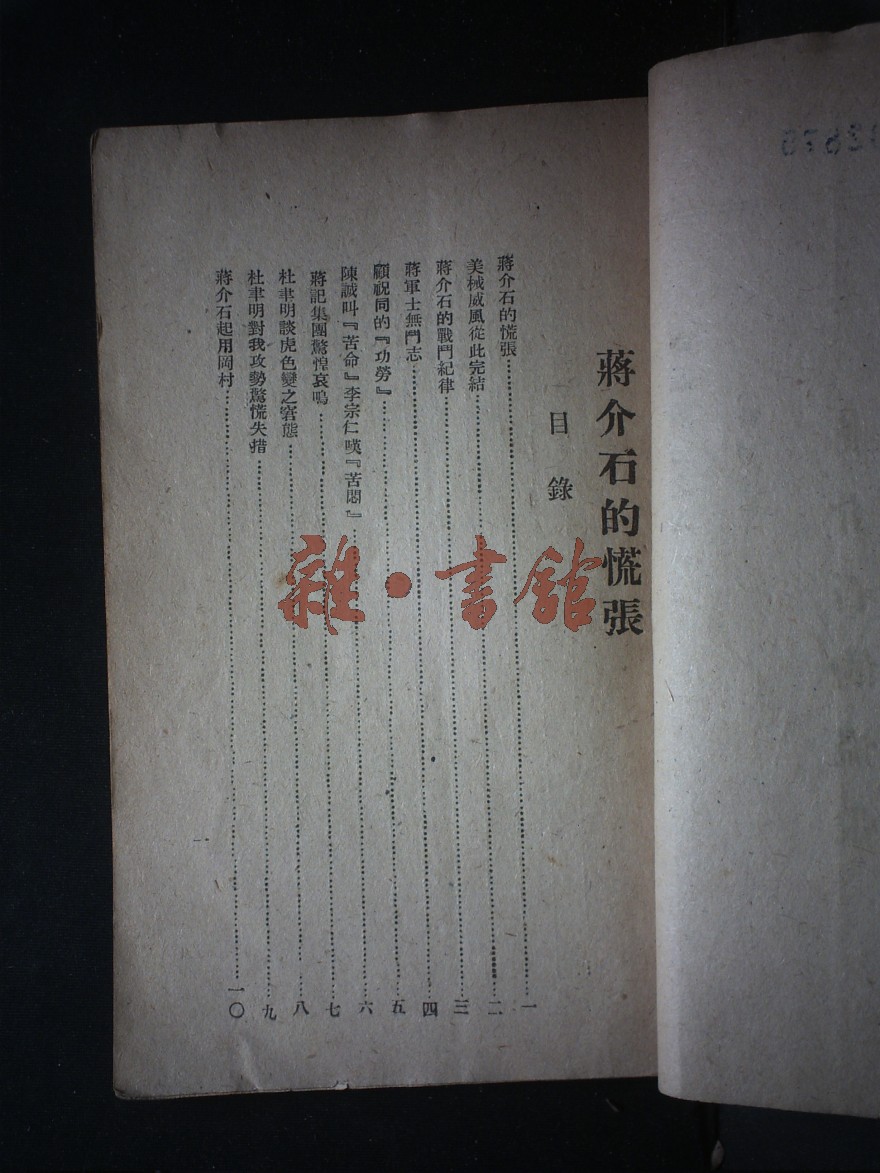 蔣介石的慌張
目錄
蔣介石的慌張……一
美械威風從此完結……二
蔣介石的戰鬥紀律……三
蔣軍士無鬥志……四
顧祝同的『功勞』……五
陳誠叫『苦命』李宗仁嘆『苦悶』……六
蔣記集團驚惶哀鳴……七
杜聿明談虎色變之窘態……八
杜聿明對我攻勢驚慌失措……九
蔣介石起用岡村……一〇
雜·書館